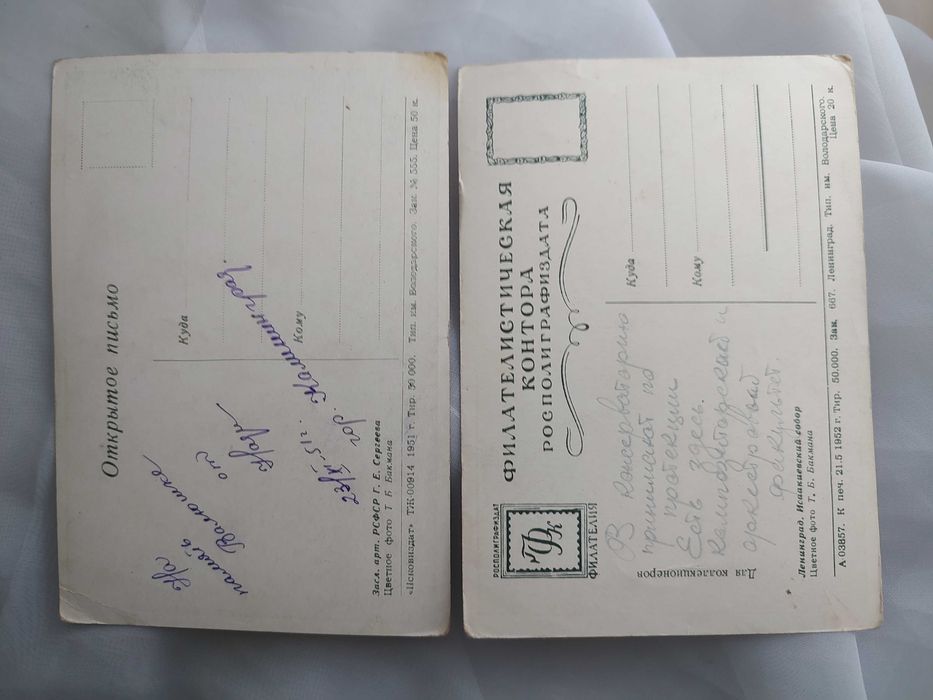 Открытое письмо
Куда
Кому
На
память
Валюшке
от
Нади
23/X-51г.
гор. Калининград.
Засл. арт. РСФСР Г. Е. Сергеева
Цветное фото Г. Б. Бакмана
«Псковиздат» ТЖ-00914 1951 г. Тир. 50 000. Тип. им. Володарского. Зак. № 555. Цена 50 к.
ФИЛАТЕЛИСТИЧЕСКАЯ
КОНТОРА
РОСПОЛИГРАФИЗДАТА
РОСПОЛИГРАФИЗДАТ
ФК
ФИЛАТЕЛИЯ
Для коллекционеров
Куда
Кому
В консерваторию
принимают по
протекции
Есть здесь.
композиторский и
оркестровый
факультет.
Ленинград. Исаакиевский собор
Цветное фото Г. Б. Бакмана
А.03857. К печ. 21.5 1952 г. Тир. 50.000. Зак. 667. Ленинград. Тип. им. Володарского.
Цена 20 к.